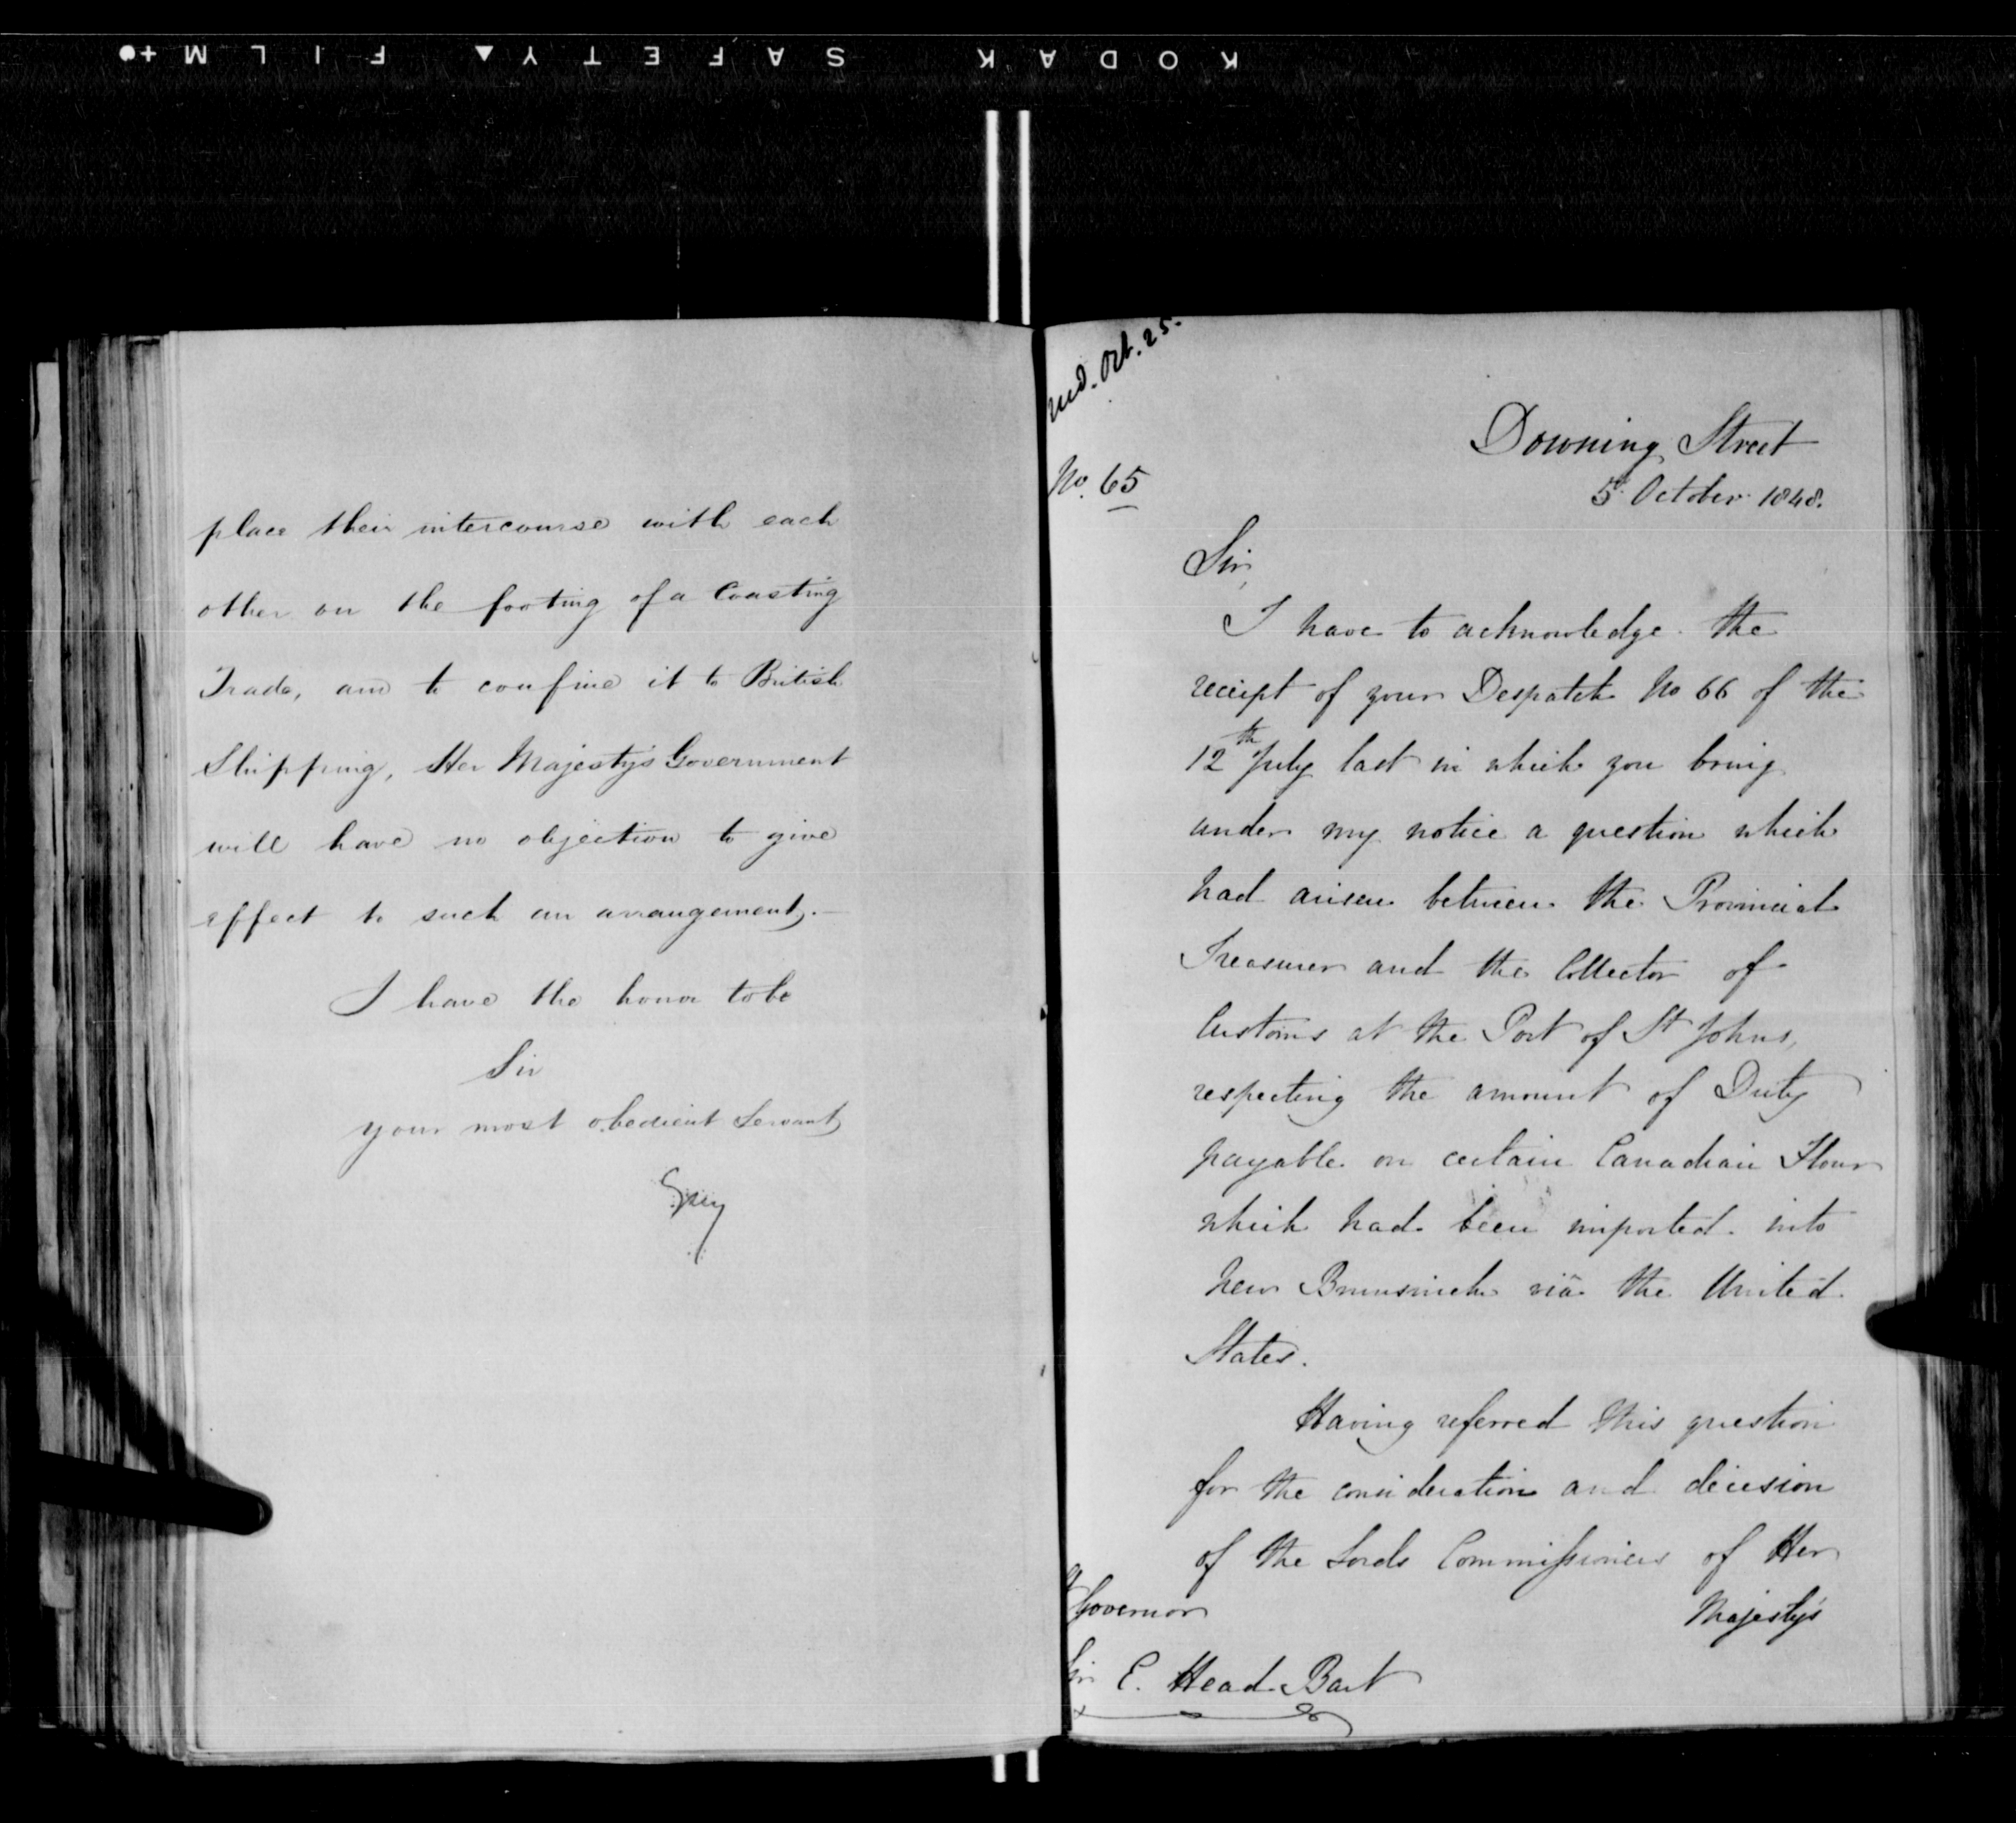 KODAK SAFETY ▲ FILM +●
place their intercourse with each
other on the footing of a Coasting
Trade, and to confine it to British
Shipping, Her Majesty's Government
will have no objection to give
effect to such an arrangement.—
I have the honor to be
Sir
your most obedient Servant
Grey
Recd. Oct. 25.
No. 65
Downing Street
5th October 1848.
Sir,
I have to acknowledge the
receipt of your Despatch No 66 of the
12th July last in which you bring
under my notice a question which
had arisen between the Provincial
Treasurer and the Collector of
Customs at the Port of St Johns,
respecting the amount of Duty
payable on certain Canadian Flour
which had been imported into
New Brunswick viâ the United
States.
Having referred this question
for the consideration and decision
of the Lords Commissioners of Her
Majesty's
Governor
Sir E. Head Bart